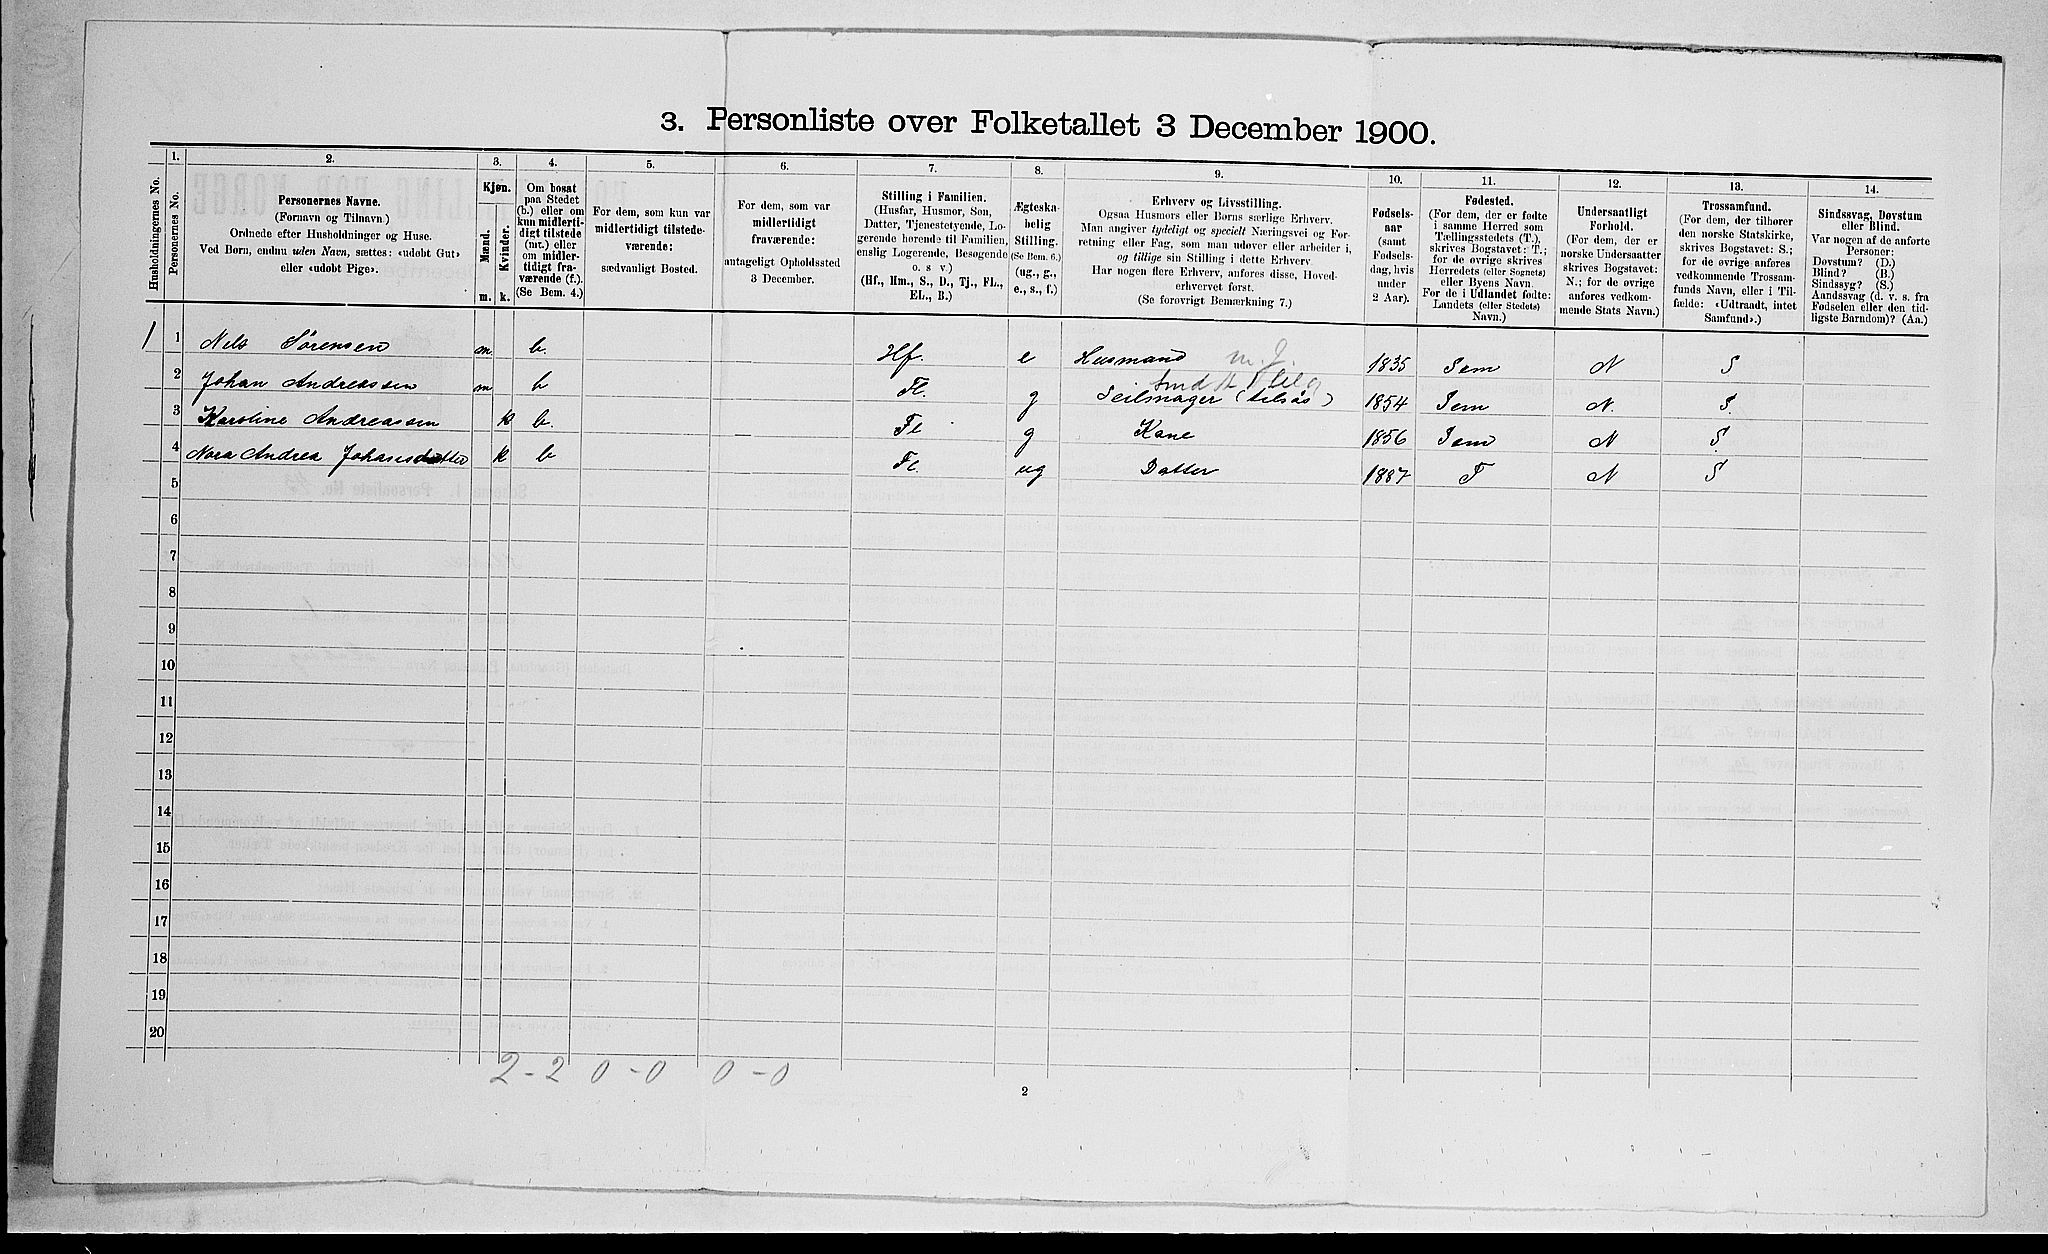 3. Personliste over Folketallet 3 December 1900.
Husholdningernes No.
1.
Personernes No.
2.
Personernes Navne.
(Fornavn og Tilnavn.)
Ordnede efter Husholdninger og Huse.
Ved Børn, endnu uden Navn, sættes: «udobt Gut»
eller «udobt Pige».
3.
Kjøn.
Mænd.
m.
Kvinder.
k.
4.
Om bosat
paa Stedet
(b.) eller om
kun midlerti-
digt tilstede
(mt.) eller
om midler-
tidigt fra-
værende (f.).
(Se Bem. 4.)
5.
For dem, som kun var
midlertidigt tilstede-
værende:
sædvanligt Bosted.
6.
For dem, som var
midlertidigt
fraværende:
antageligt Opholdssted
3 December.
7.
Stilling i Familien.
(Husfar, Husmor, Søn,
Datter, Tjenestetyende, Lo-
gerende hørende til Familien,
enslig Logerende, Besøgende
o. s v.)
(Hf., Hm., S., D., Tj., FL.,
EL., B.)
8.
Ægteska-
belig
Stilling.
(Se Bem. 6.)
(ug., g.,
e., s., f.)
9.
Erhverv og Livsstilling.
Ogsaa Husmors eller Børns særlige Erhverv.
Man angiver tydeligt og specielt Næringsvei og For-
retning eller Fag, som man udøver eller arbeider i,
og tillige sin Stilling i dette Erhverv.
Har nogen flere Erhverv, anføres disse, Hoved-
erhvervet først.
(Se forøvrigt Bemærkning 7.)
10.
Fødsels-
aar
(samt
Fødsels-
dag, hvis
under
2 Aar).
11.
Fødested.
(For dem, der er fødte
i samme Herred som
Tællingsstedets (T.),
skrives Bogstavet: T.;
for de øvrige skrives
Herredets (eller Sognets)
eller Byens Navn.
For de i Udlandet fødte:
Landets (eller Stedets)
Navn.)
12.
Undersaatligt
Forhold.
(For dem, der er
norske Undersaatter
skrives Bogstavet:
N.; for de øvrige
anføres vedkom-
mende Stats Navn.)
13.
Trossamfund.
(For dem, der tilhører
den norske Statskirke,
skrives Bogstavet: S.;
for de øvrige anføres
vedkommende Trossam-
funds Navn, eller i Til-
fælde: «Udtraadt, intet
Samfund».)
14.
Sindssvag, Døvstum
eller Blind.
Var nogen af de anførte
Personer:
Døvstum? (D.)
Blind? (B.)
Sindssyg? (S.)
Aandssvag (d. v. s. fra
Fødselen eller den tid-
ligste Barndom)? (Aa.)
1 1 Nels Sørensen m. b. Hf. e Husmand m. J. 1835 Sem N S
2 Johan Andreassen m b Fl. g Seilmager 1854 Sem N. S.
3 Karoline Andreassen k b. Fl g Kone 1856 Sem N S
4 Nora Andrea Johansdatter k b Fl. ug Datter 1887 T N S
5
6
7
8
9
10
11
12
13
14
15
16
17
18
19
20
2 - 2 0 - 0 0 - 0
2